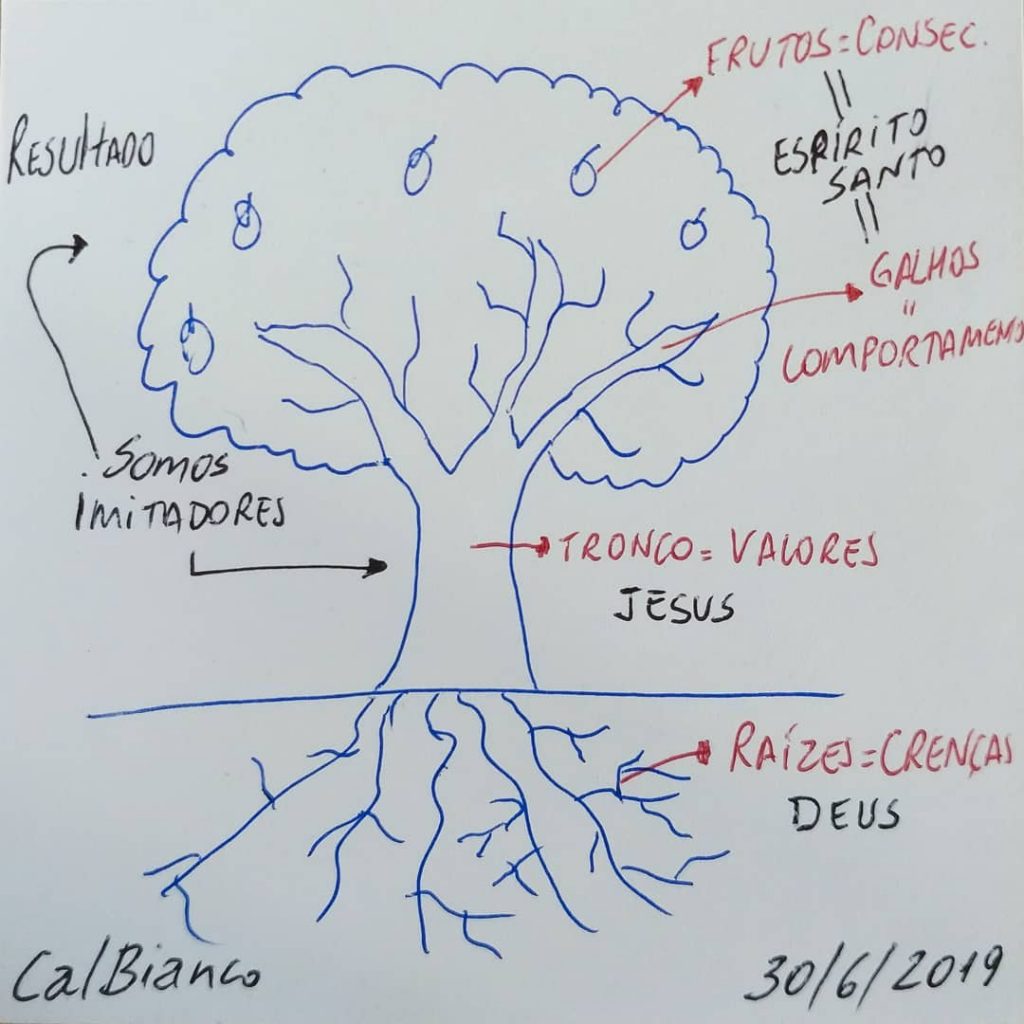 FRUTOS=CONSEC.
"
ESPÍRITO
SANTO
"
RESULTADO
GALHOS
"
COMPORTAMEN
. SOMOS
IMITADORES
TRONCO= VALORES
JESUS
RAÍZES=CRENÇAS
DEUS
Cal Bianco
30/6/2019